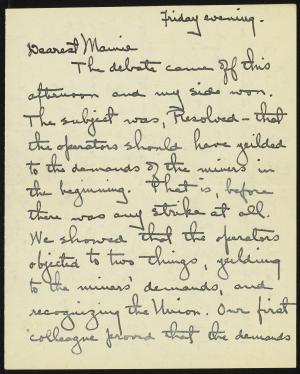 Friday evening.
Dearest Mamie
The debate came off this
afternoon and my side won.
The subject was, Resolved - that
the operators should have yeilded
to the demands of the miners in
the beginning. That is, before
there was any strike at all.
We showed that the operators
objected to two things, yeilding
to the miners' demands, and
recognizing the Union. Our first
colleague proved that the demands